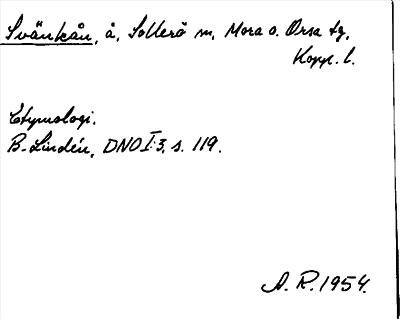 Svänkån, å, Sollerö sn, Mora o. Orsa tg,
Kopp. l.
Etymologi.
B. Lindén, DNO I:3, s. 119.
A. R. 1954.